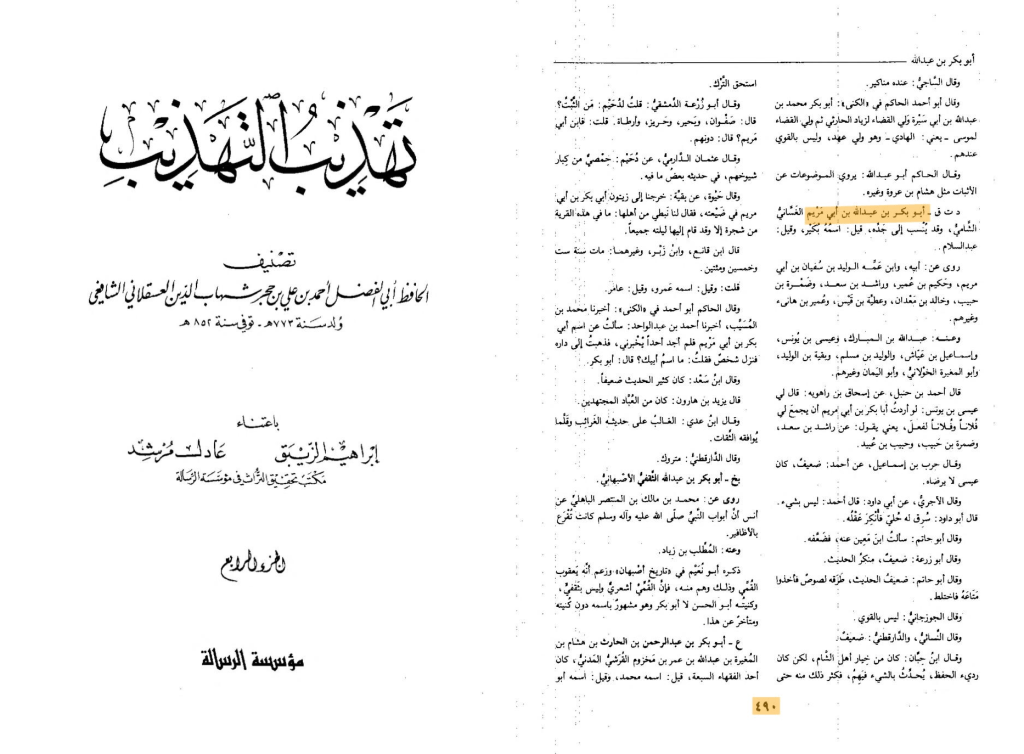 تهذيب التهذيب
تصنيف
الحافظ أبي الفضل أحمد بن علي بن حجر شهاب الدين العسقلاني الشافعي
ولد سنة ٧٧٣هـ - توفي سنة ٨٥٢ هـ
باعتناء
إبراهيم الزيبق عادل مرشد
مكتب تحقيق التراث في مؤسسة الرسالة
الجزء الرابع
مؤسسة الرسالة
أبو بكر بن عبدالله
وقال السَّاجيُّ: عنده مناكير.
وقال أبو أحمد الحاكم في «الكنى»: أبو بكر محمد بن
عبدالله بن أبي سَبْرة وَلي القضاء لزياد الحارثي ثم ولي القضاء
لموسى ـ يعني: الهادي ـ وهو ولي عهد، وليس بالقوي
عندهم.
وقال الحاكم أبو عبدالله: يروي الموضوعات عن
الأثبات مثل هشام بن عروة وغيره.
د ت ق ـ أبو بكر بن عبدالله بن أبي مَرْيم الغَسَّانيُّ
الشَّاميُّ، وقد يُنْسب إلى جَدِّه، قيل: اسمُهُ بُكَيْر، وقيل:
عبدالسلام.
روى عن: أبيه، وابن عَمِّه الوليد بن سُفيان بن أبي
مريم، وحَكيم بن عُمير، وراشد بن سعد، وضَمْرة بن
حبيب، وخالد بن مَعْدان، وعطيَّة بن قَيْس، وعُمير بن هانىء
وغيرهم.
وعنه: عبدالله بن المبارك، وعيسى بن يُونس،
وإسماعيل بن عَيَّاش، والوليد بن مسلم، وبقية بن الوليد،
وأبو المغيرة الخَوْلانيُّ، وأبو اليَمان وغيرهم.
قال أحمد بن حنبل، عن إسحاق بن راهويه: قال لي
عيسى بن يونس: لو أردتُ أبا بكر بن أبي مريم أن يجمعَ لي
فُلاناً وفُلاناً لفعلَ، يعني يقول: عن راشد بن سعد،
وضمرة بن حَبيب، وحبيب بن عُبيد.
وقال حرب بن إسماعيل، عن أحمد: ضعيفٌ، كان
عيسى لا يرضاه.
وقال الآجريُّ، عن أبي داود: قال أحمد: ليس بشيء.
قال أبو داود: سُرِق له حُليٌّ فأُنْكِرَ عَقْلُه.
وقال أبو حاتم: سألتُ ابنَ مَعِين عنه، فضَعَّفه.
وقال أبو زرعة: ضعيفٌ، منكرُ الحديث.
وقال أبو حاتم: ضعيفُ الحديث، طَرَقَه لصوصٌ فأخذوا
مَتَاعَهُ فاختلط.
وقال الجوزجانيُّ: ليس بالقوي.
وقال النَّسائيُّ، والدَّارقطنيُّ: ضعيفٌ.
وقال ابنُ حِبَّان: كان من خيار أهل الشَّام، لكن كان
رديء الحفظ، يُحدِّثُ بالشيء فيَهِمُ، فكثر ذلك منه حتى
استحق التَّرْك.
وقال أبو زُرْعة الدِّمشقيُّ: قلتُ لدُحَيْم: مَن الثَّبْتُ؟
قال: صَفْوان، وبَحير، وحَريز، وأرطاة. قلت: فابن أبي
مَريم؟ قال: دونهم.
وقال عثمان الدَّارميُّ، عن دُحَيْم: حِمْصيٌّ من كبار
شيوخهم، في حديثه بعضُ ما فيه.
وقال حَيْوة، عن بقيَّة: خرجنا إلى زيتون أبي بكر بن أبي
مريم في ضَيْعته، فقال لنا نبطي من أهلها: ما في هذه القرية
من شجرة إلا وقد قام إليها ليلته جميعاً.
قال ابن قانع، وابنُ زَبْر، وغيرهما: مات سنة ست
وخمسين ومئتين.
قلت: وقيل: اسمه عَمرو، وقيل: عامر.
وقال الحاكم أبو أحمد في «الكنى»: أخبرنا محمد بن
المُسَيَّب، أخبرنا أحمد بن عبدالواحد: سألتُ عن اسم أبي
بكر بن أبي مَرْيم فلم أجد أحداً يُخْبرني، فذهبتُ إلى داره
فنزل شخصٌ فقلتُ: ما اسمُ أبيك؟ قال: أبو بكر.
وقال ابنُ سَعْد: كان كثير الحديث ضعيفاً.
قال يزيد بن هارون: كان من العُبَّاد المجتهدين.
وقال ابنُ عدي: الغالبُ على حديثه الغَرائب وقَلَّما
يُوافقه الثِّقات.
وقال الدَّارقطنيُّ: متروك.
بخ ـ أبو بكر بن عبدالله الثَّقَفيُّ الأصْبهانيُّ.
روى عن: محمد بن مالك بن المنتصر الباهليِّ عن
أنس أنَّ أبواب النَّبيِّ صلّى الله عليه وآله وسلم كانت تُقْرَع
بالأظافير.
وعنه: المُطَّلب بن زياد.
ذكره أبو نُعَيْم في «تاريخ أصْبهان» وزعم أنَّه يَعقوب
القُمِّي وذلك وهم منه، فإنَّ القُمِّيَّ أشعريٌّ وليس بثَقَفيٍّ،
وكنيتُه أبو الحسن لا أبو بكر وهو مشهورٌ باسمه دون كُنيته
ومتأخرٌ عن هذا.
ع ـ أبو بكر بن عبدالرحمن بن الحارث بن هشام بن
المُغيرة بن عبدالله بن عمر بن مَخْزوم القُرَشيُّ المَدنيُّ، كان
أحد الفقهاء السبعة، قيل: اسمه محمد، وقيل: اسمه أبو
٤٩٠